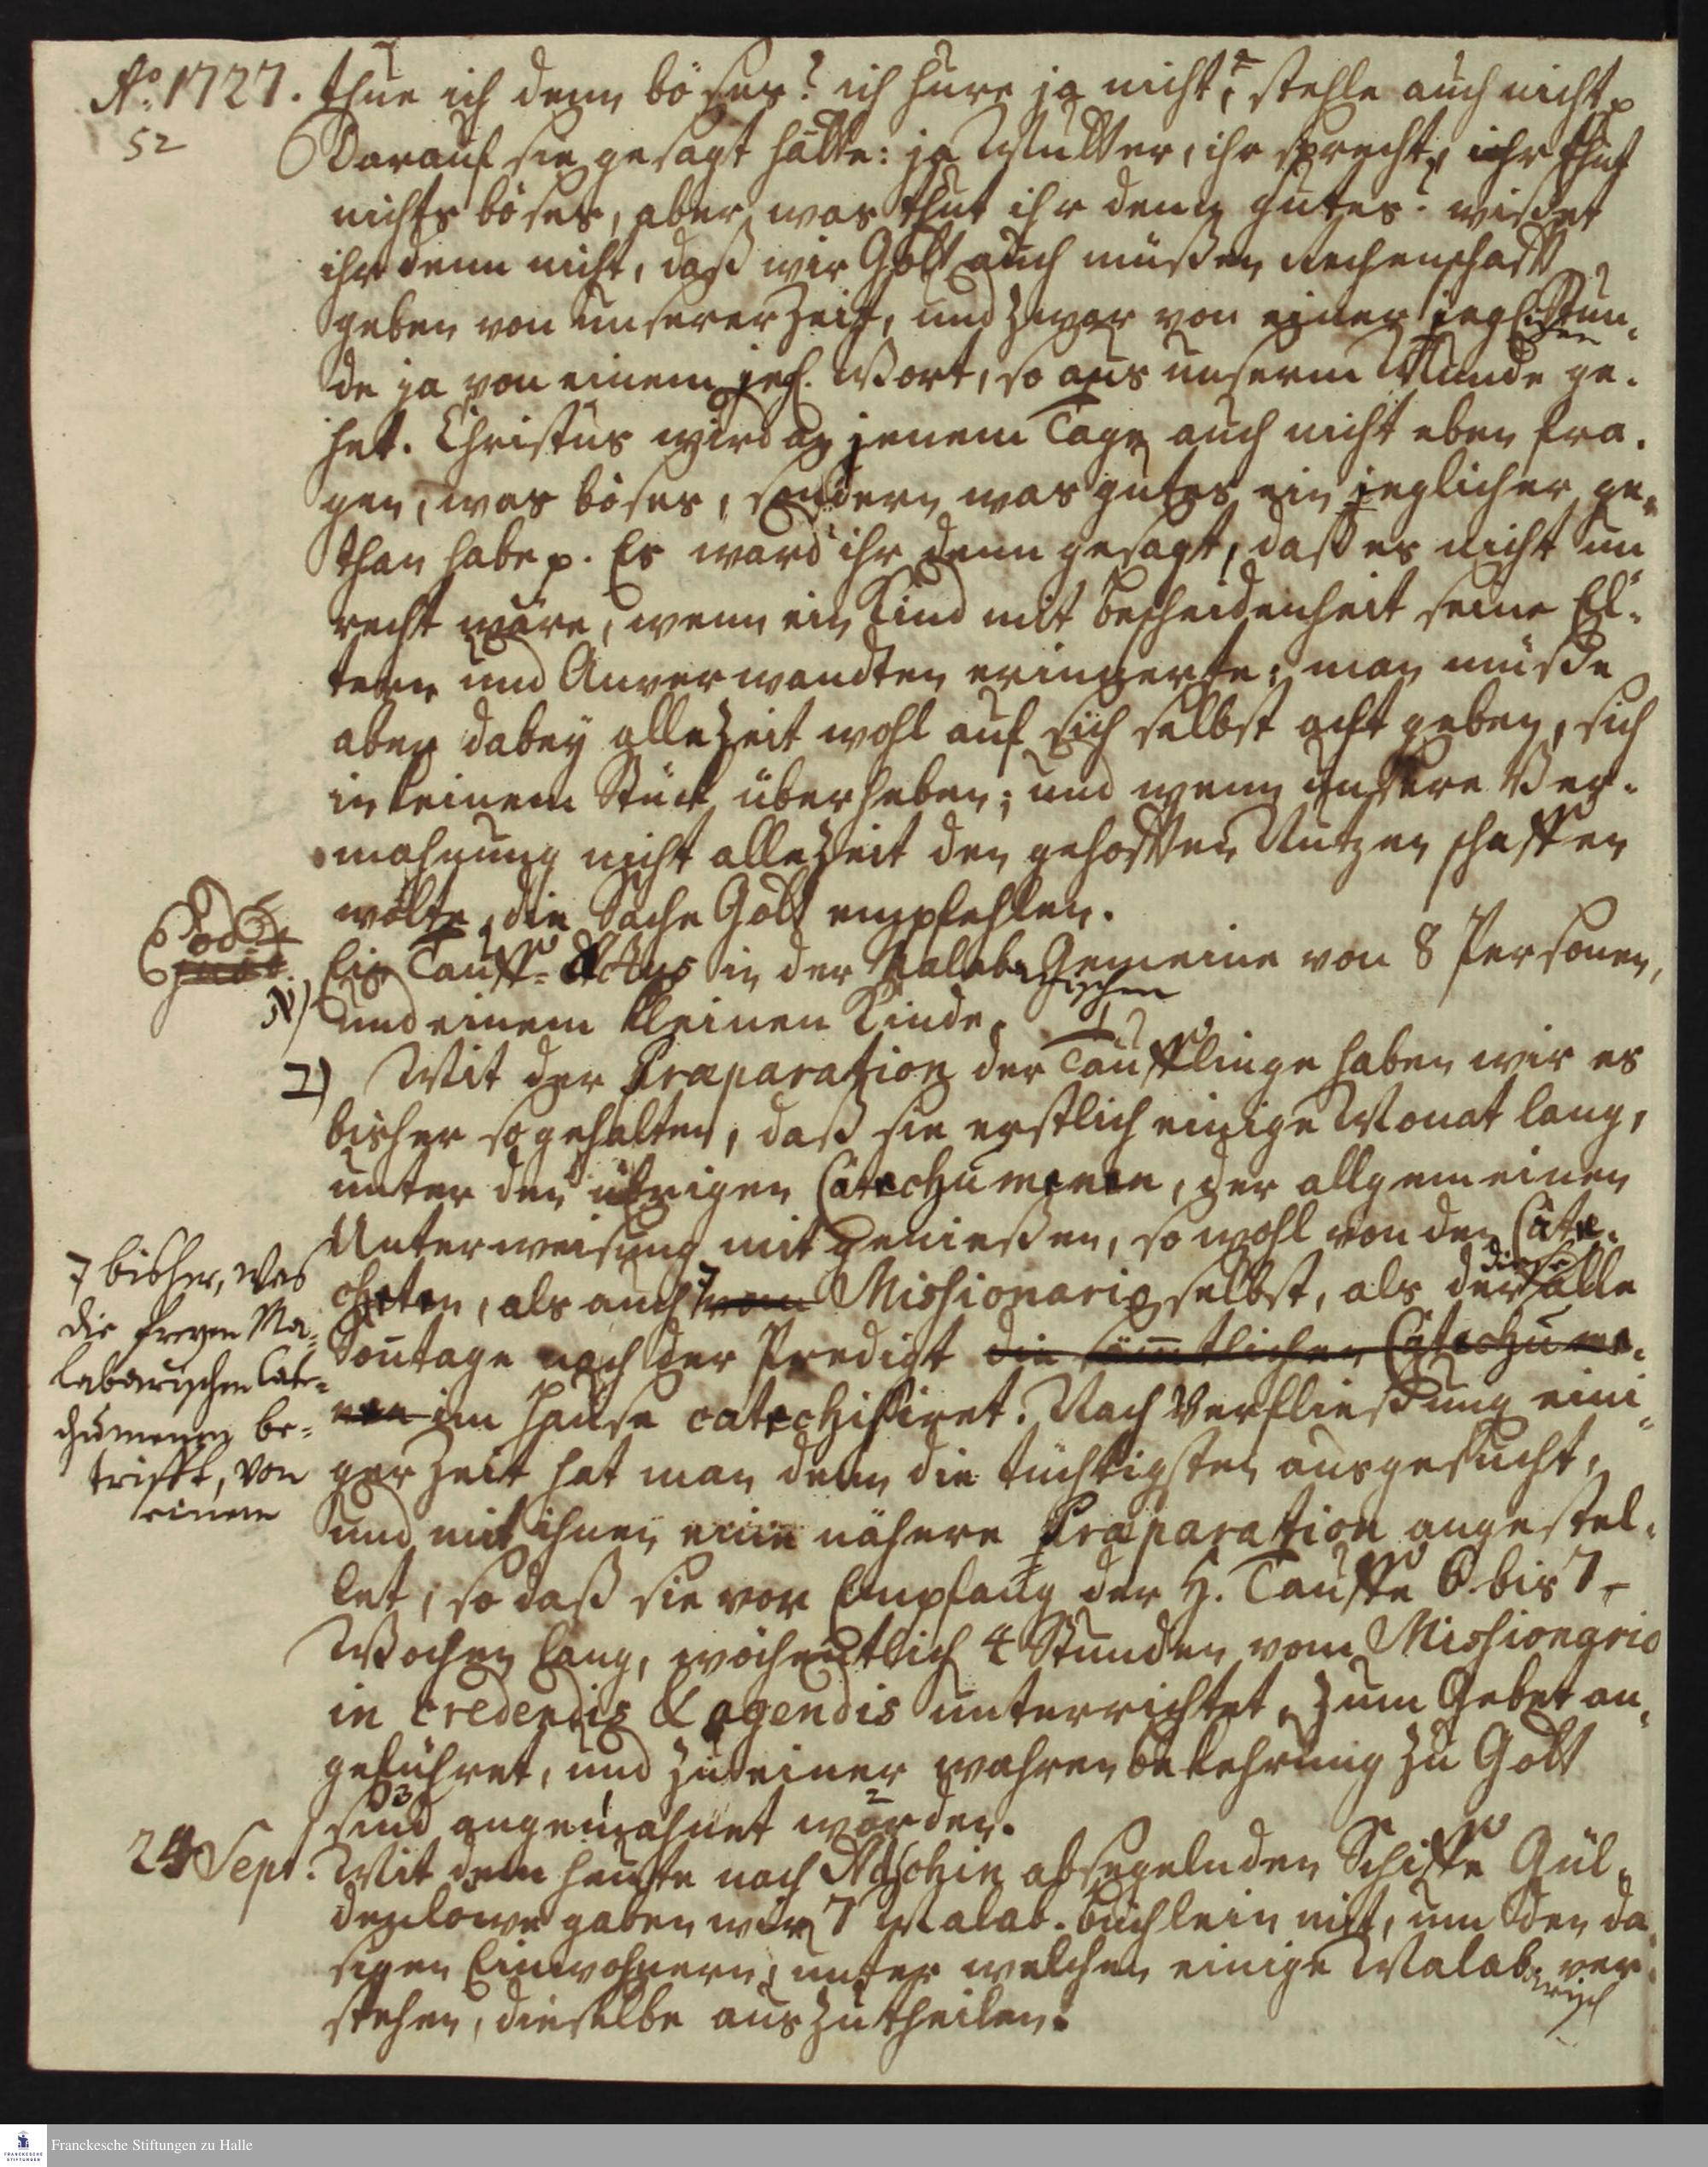 Ao. 1727.
52
thue ich denn böses? ich hure ja nicht, stehle auch nicht p
Darauf sie gesagt hätte: ja Mutter, ihr sprecht, ihr thut
nichts böses, aber, was thut ihr denn gutes? wißet
ihr denn nicht, daß wir Gott auch müßen Rechenschafft
geben von unserer Zeit, und zwar von einer jeglichen Stun-
de ja von einem jegl. Wort, so aus unserm Munde ge-
het. Christus wird an jenem Tage auch nicht eben fra-
gen, was böses, sondern was gutes ein jeglicher ge-
than habe p. Es ward ihr denn gesagt, daß es nicht un
recht wäre, wenn ein Kind mit bescheidenheit seine El-
tern und Anverwandten erinnerte; man müße
aber dabey allezeit wohl auf sich selbst acht geben, sich
in keinem Stück überheben; und wenn unsere Ver-
mahnung nicht allezeit den gehofften Nutzen schaffen
wolte, die Sache Gott empfehlen.
Ein Tauff-Actus in der Malabarischen Gemeine von 8 Personen,
N) und einem kleinen Kinde.
2) Mit der Præparation der Täufflinge haben wir es
bisher so gehalten, daß sie erstlich einige Monat lang,
unter den übrigen Catechumenen, der allgemeinen
Unterweisung mit genießen, so wohl von den Cate-
cheten, als auch von Missionario selbst, als der diese alle
Sontage nach der Predigt die sämtlichen Catechume-
nen im Hause catechisiret. Nach Verfließung eini-
ger Zeit hat man denn die tüchtigsten ausgesucht,
und mit ihnen eine nähere Præparation angestel-
let, so daß sie vor Empfang der H. Tauffe 6 bis 7
Wochen lang, wöchentlich 4 Stunden vom Missionario
in credendis & agendis unterrichtet, zum Gebet an-
geführet, und zu einer wahren bekehrung zu Gott
sind angemahnet worden.
7 bisher, was
die freyen Ma-
labarischen Cate-
chumenen be-
trifft, von
einem
24 Sept. Mit dem heute nach Atschin absegelnden Schiffe Gül-
denlöwe gaben wir 7 Malab. büchlein mit, um den da
sigen Einwohnern, unter welchen einige Malabarisch ver-
stehen, dieselbe auszutheilen.
Franckesche Stiftungen zu Halle
FRANCKESCHE
STIFTUNGEN